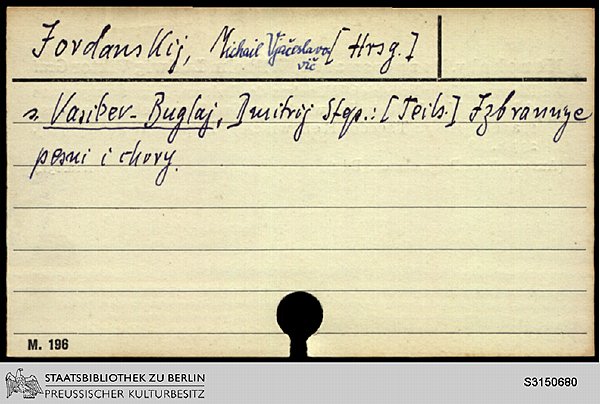 Jordanskij, Michail Vjačeslavo[ Hrsg.]
vič
s. Vasil'ev-Buglaj, Dmitrij Step.: [Teils.] Izbrannye
pesni i chory.
M. 196
STAATSBIBLIOTHEK ZU BERLIN
PREUSSISCHER KULTURBESITZ
S3150680